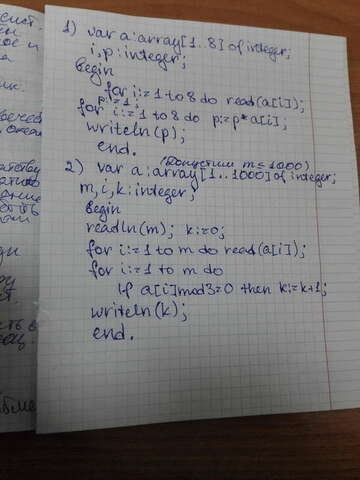 1) var a:array[1..8] of integer;
i,p:integer;
begin
for i:=1 to 8 do read(a[i]);
p:=1;
for i:=1 to 8 do p:=p*a[i];
writeln(p);
end.
(допустим m ≤ 1000)
2) var a:array[1..1000] of integer;
m,i,k:integer;
begin
readln(m); k:=0;
for i:=1 to m do read(a[i]);
for i:=1 to m do
if a[i]mod3=0 then k:=k+1;
writeln(k);
end.